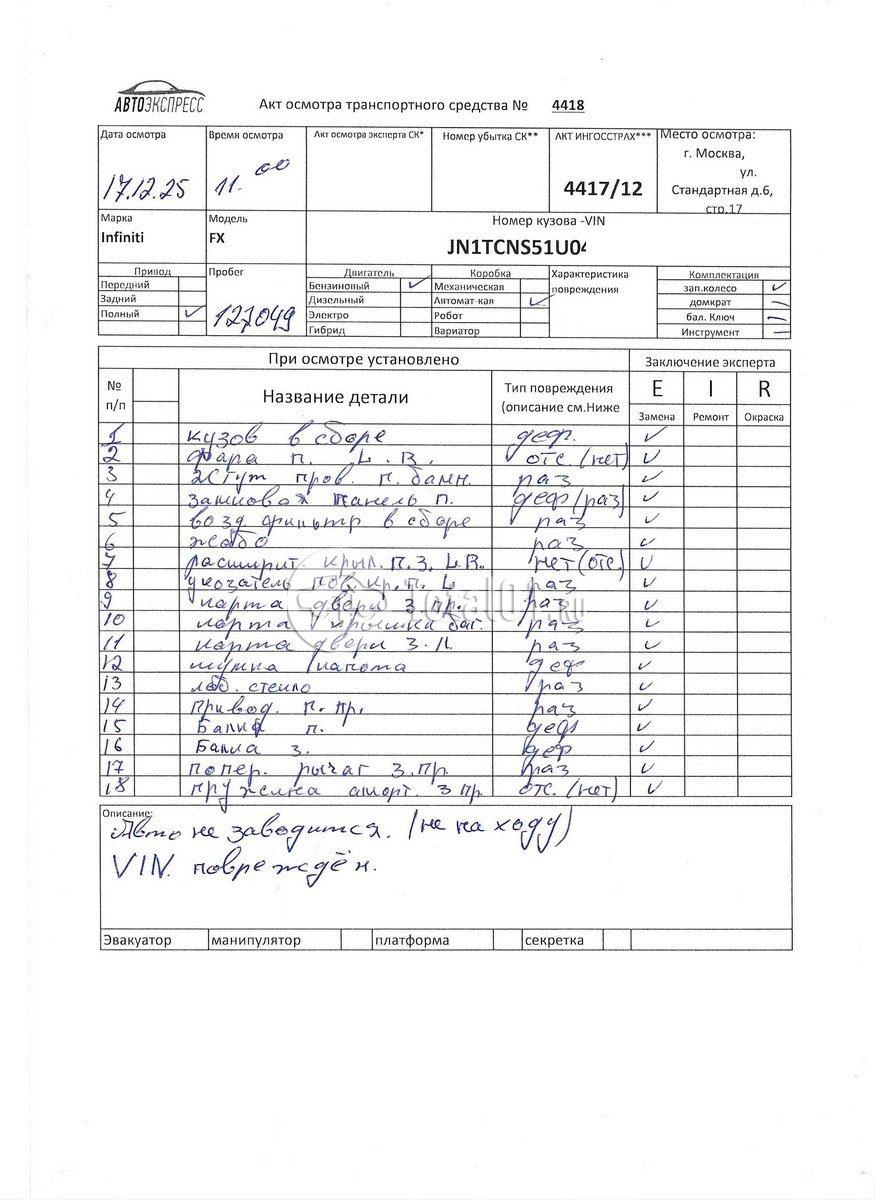 АВТОЭКСПРЕСС
Акт осмотра транспортного средства № 4418
Дата осмотра Время осмотра Акт осмотра эксперта СК* Номер убытка СК** АКТ ИНГОССТРАХ*** Место осмотра:
г. Москва,
ул.
17.12.25 11.00 4417/12 Стандартная д.6,
стр.17
Марка Модель Номер кузова -VIN
Infiniti FX JN1TCNS51U04
Привод Пробег Двигатель Коробка Характеристика Комплектация
Передний Бензиновый ✓ Механическая повреждения зап.колесо ✓
Задний Дизельный Автомат-кая ✓ домкрат —
Полный ✓ 127049 Электро Робот бал. Ключ —
Гибрид Вариатор Инструмент —
При осмотре установлено Заключение эксперта
№ п/п Название детали Тип повреждения (описание см.Ниже E I R
Замена Ремонт Окраска
1 кузов в сборе деф. ✓
2 фара п. L. R. отс. (нет) ✓
3 жгут пров. п. бамп. раз ✓
4 замковая панель п. деф/раз) ✓
5 возд фильтр в сборе раз ✓
6 жабо раз ✓
7 расширит. крыл. п. з. L. R. нет (отс.) ✓
8 указатель пов. кр. п. L раз ✓
9 карта двери з пр. раз ✓
10 карта крышки баг. раз ✓
11 карта двери з. л. раз ✓
12 шумка капота деф ✓
13 лоб. стекло раз ✓
14 привод. п. пр. раз ✓
15 Балка п. деф ✓
16 Балка з. деф ✓
17 попер. рычаг з. пр. раз ✓
18 пружина аморт. з пр. отс. (нет) ✓
TotalOt.ru
Описание:
Авто не заводится. (не на ходу)
VIN. повреждён.
Эвакуатор манипулятор платформа секретка